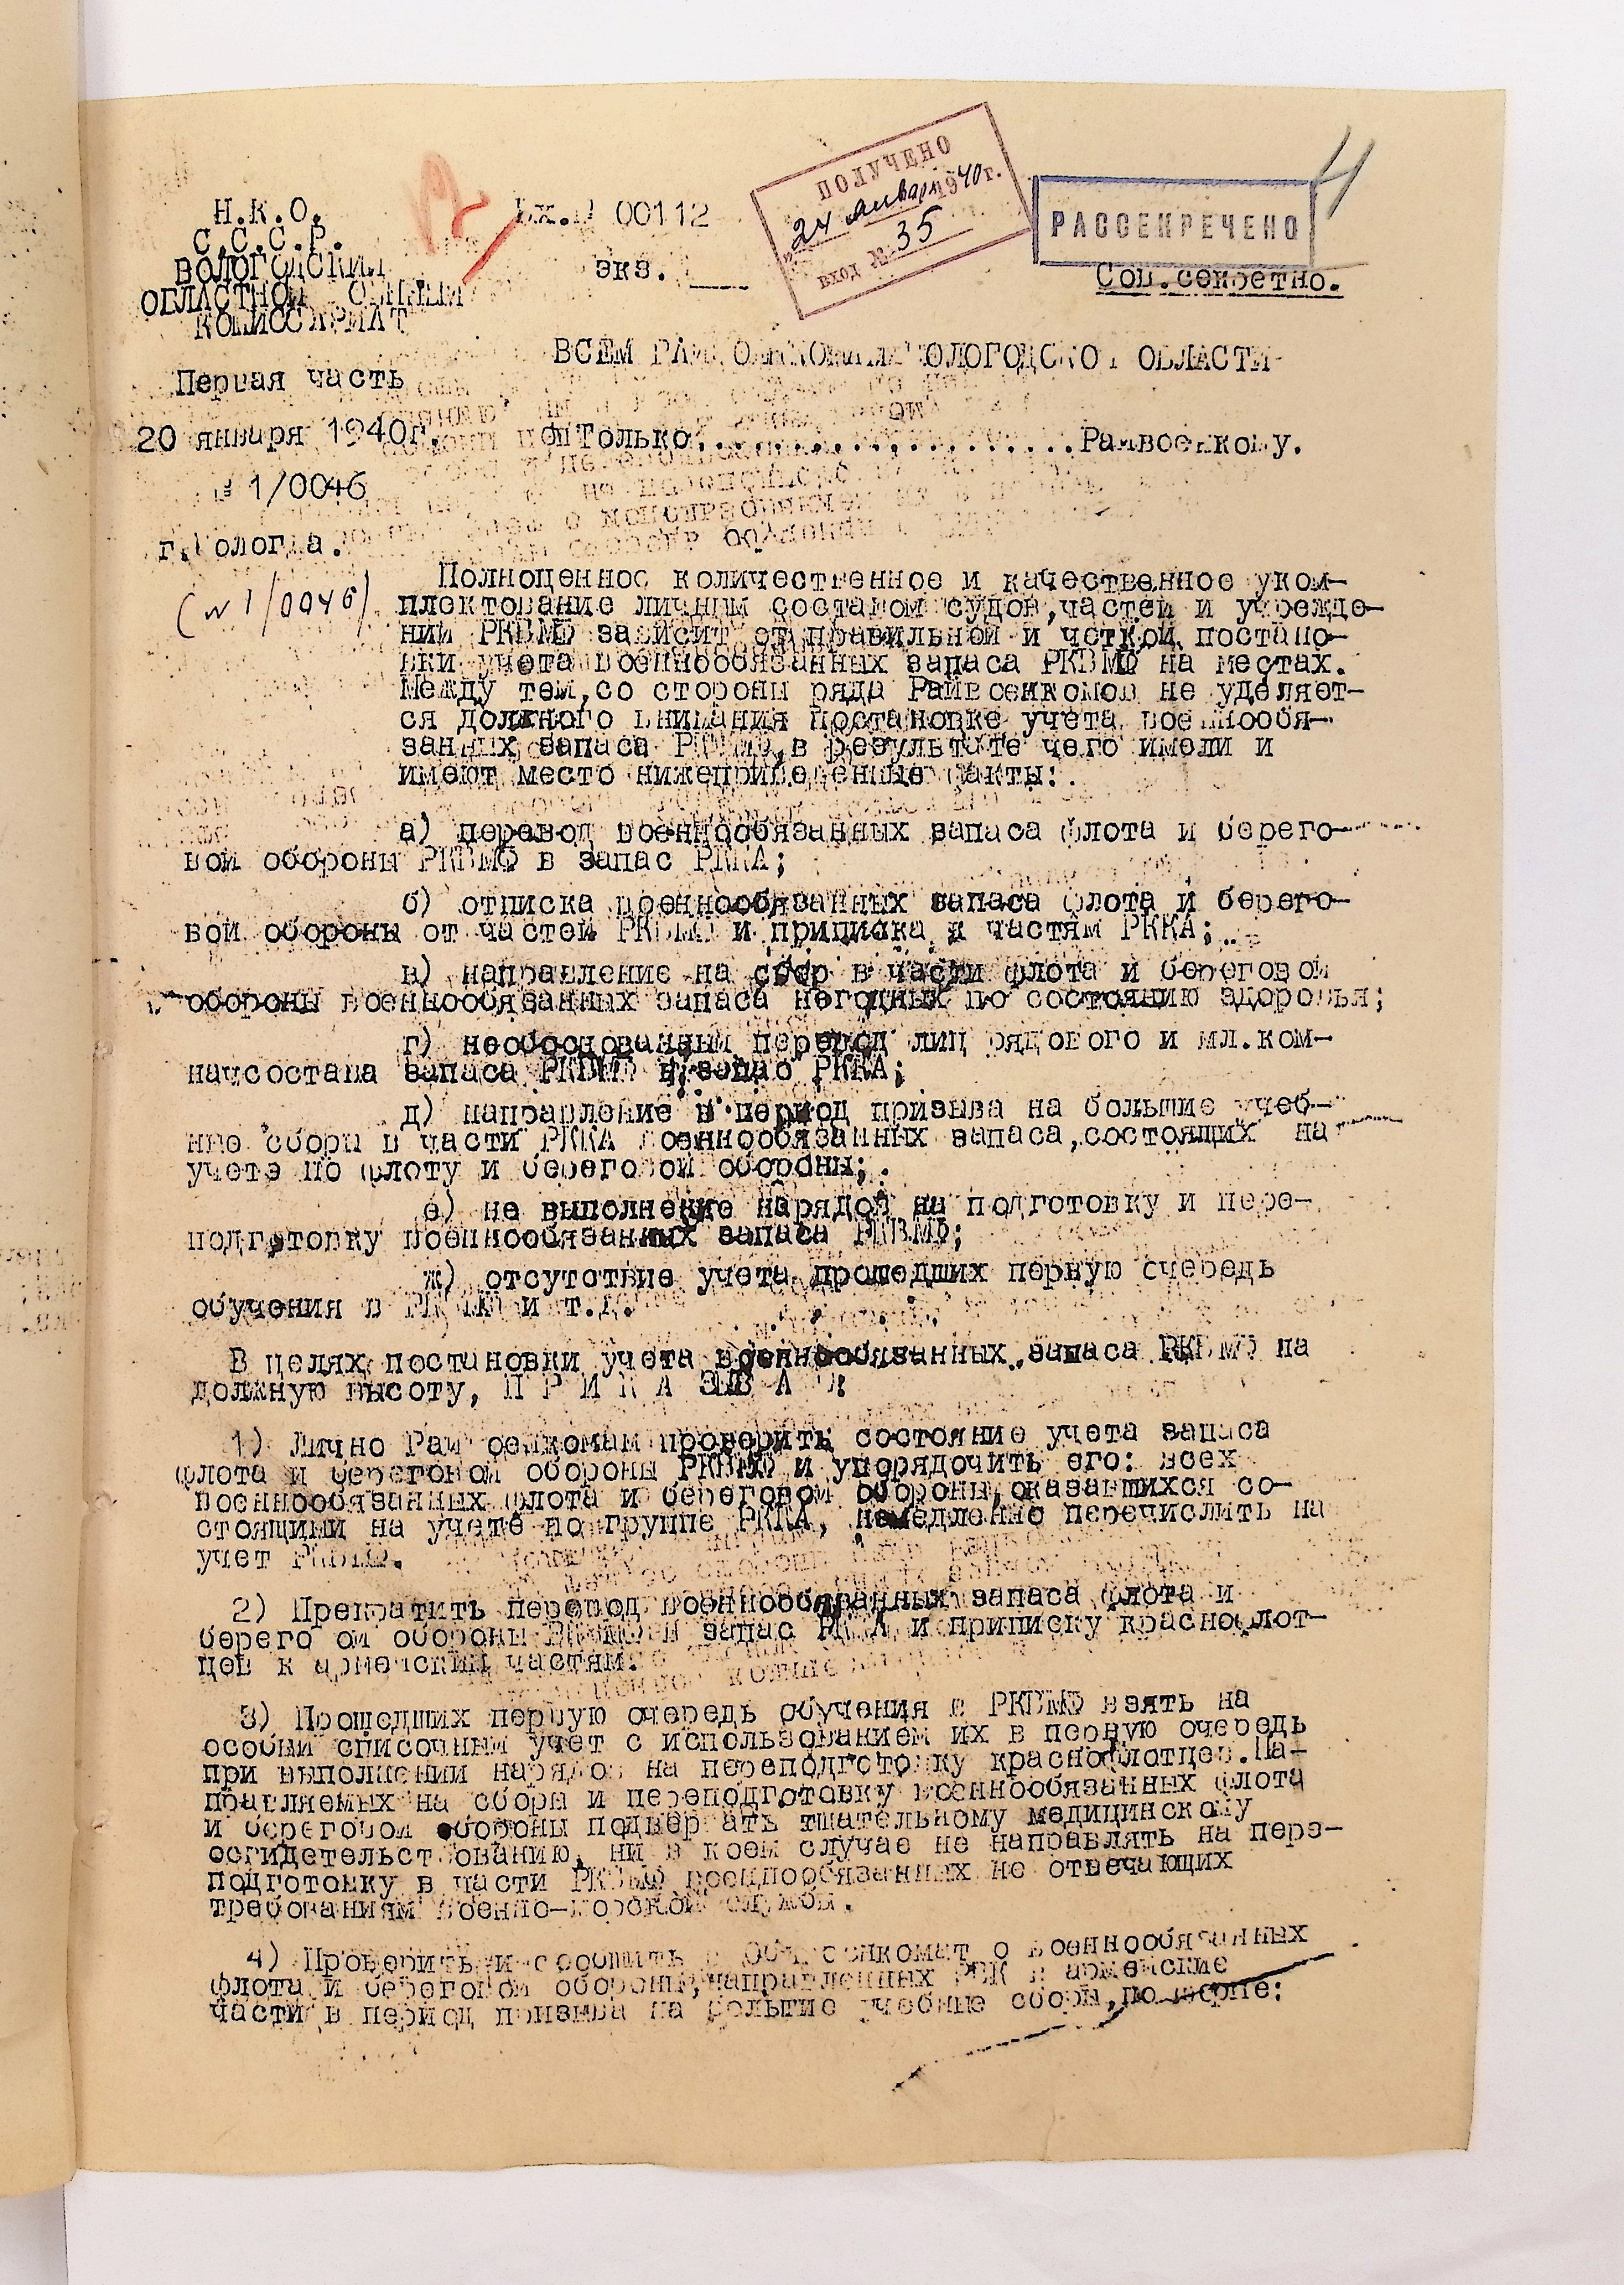 Н.К.О.
С.С.С.Р.
ВОЛОГОДСКИЙ
ОБЛАСТНОЙ ВОЕННЫЙ
КОМИССАРИАТ
Первая часть
20 января 1940г.
№ 1/0046
г.Вологда.
(№ 1/0046)
00112
экз. ___
ПОЛУЧЕНО
"24" января 1940г.
вход № 35
РАССЕКРЕЧЕНО
4
Сов.секретно.
ВСЕМ РАЙВОЕНКОМАМ ВОЛОГОДСКОЙ ОБЛАСТИ
Только......................Райвоенкому.
Полноценное количественное и качественное уком-
плектование личным составом судов,частей и учрежде-
ний РКВМФ зависит от правильной и четкой постано-
вки учета военнообязанных запаса РКВМФ на местах.
Между тем,со стороны ряда Райвоенкомов не уделяет-
ся должного внимания постановке учета военнообя-
занных запаса РКВМФ,в результате чего имели и
имеют место нижеприведенные факты:
а) перевод военнообязанных запаса флота и берего-
вой обороны РКВМФ в запас РККА;
б) отписка военнообязанных запаса флота и берего-
вой обороны от частей РКВМФ и приписка к частям РККА;
в) направление на сбор в части флота и береговой
обороны военнообязанных запаса негодных по состоянию здоровья;
г) необоснованный перевод лиц рядового и мл.ком-
начсостава запаса РКВМФ в запас РККА;
д) направление в период призыва на большие учеб-
ные сборы в части РККА военнообязанных запаса,состоящих на
учете по флоту и береговой обороны;
е) не выполнение нарядов на подготовку и пере-
подготовку военнообязанных запаса РКВМФ;
ж) отсутствие учета прошедших первую очередь
обучения в РКВМФ и т.д.
В целях постановки учета военнообязанных запаса РКВМФ на
должную высоту, П Р И К А З Ы В А Ю:
1) Лично Райвоенкомам проверить состояние учета запаса
флота и береговой обороны РКВМФ и упорядочить его: всех
военнообязанных флота и береговой обороны,оказавшихся со-
стоящими на учете по группе РККА, немедленно перечислить на
учет РКВМФ.
2) Прекратить перевод военнообязанных запаса флота и
береговой обороны РКВМФ в запас РККА и приписку краснофлот-
цев к армейским частям.
3) Прошедших первую очередь обучения в РКВМФ взять на
особый списочный учет с использованием их в первую очередь
при выполнении нарядов на переподготовку краснофлотцев.На-
правляемых на сборы и переподготовку военнообязанных флота
и береговой обороны подвергать тщательному медицинскому
освидетельствованию, ни в коем случае не направлять на пере-
подготовку в части РКВМФ военнообязанных не отвечающих
требованиям военно-морской службы.
4) Проверить и сообщить в Облвоенкомат о военнообязанных
флота и береговой обороны,направленных РВК в армейские
части в период призыва на большие учебные сборы,по форме: